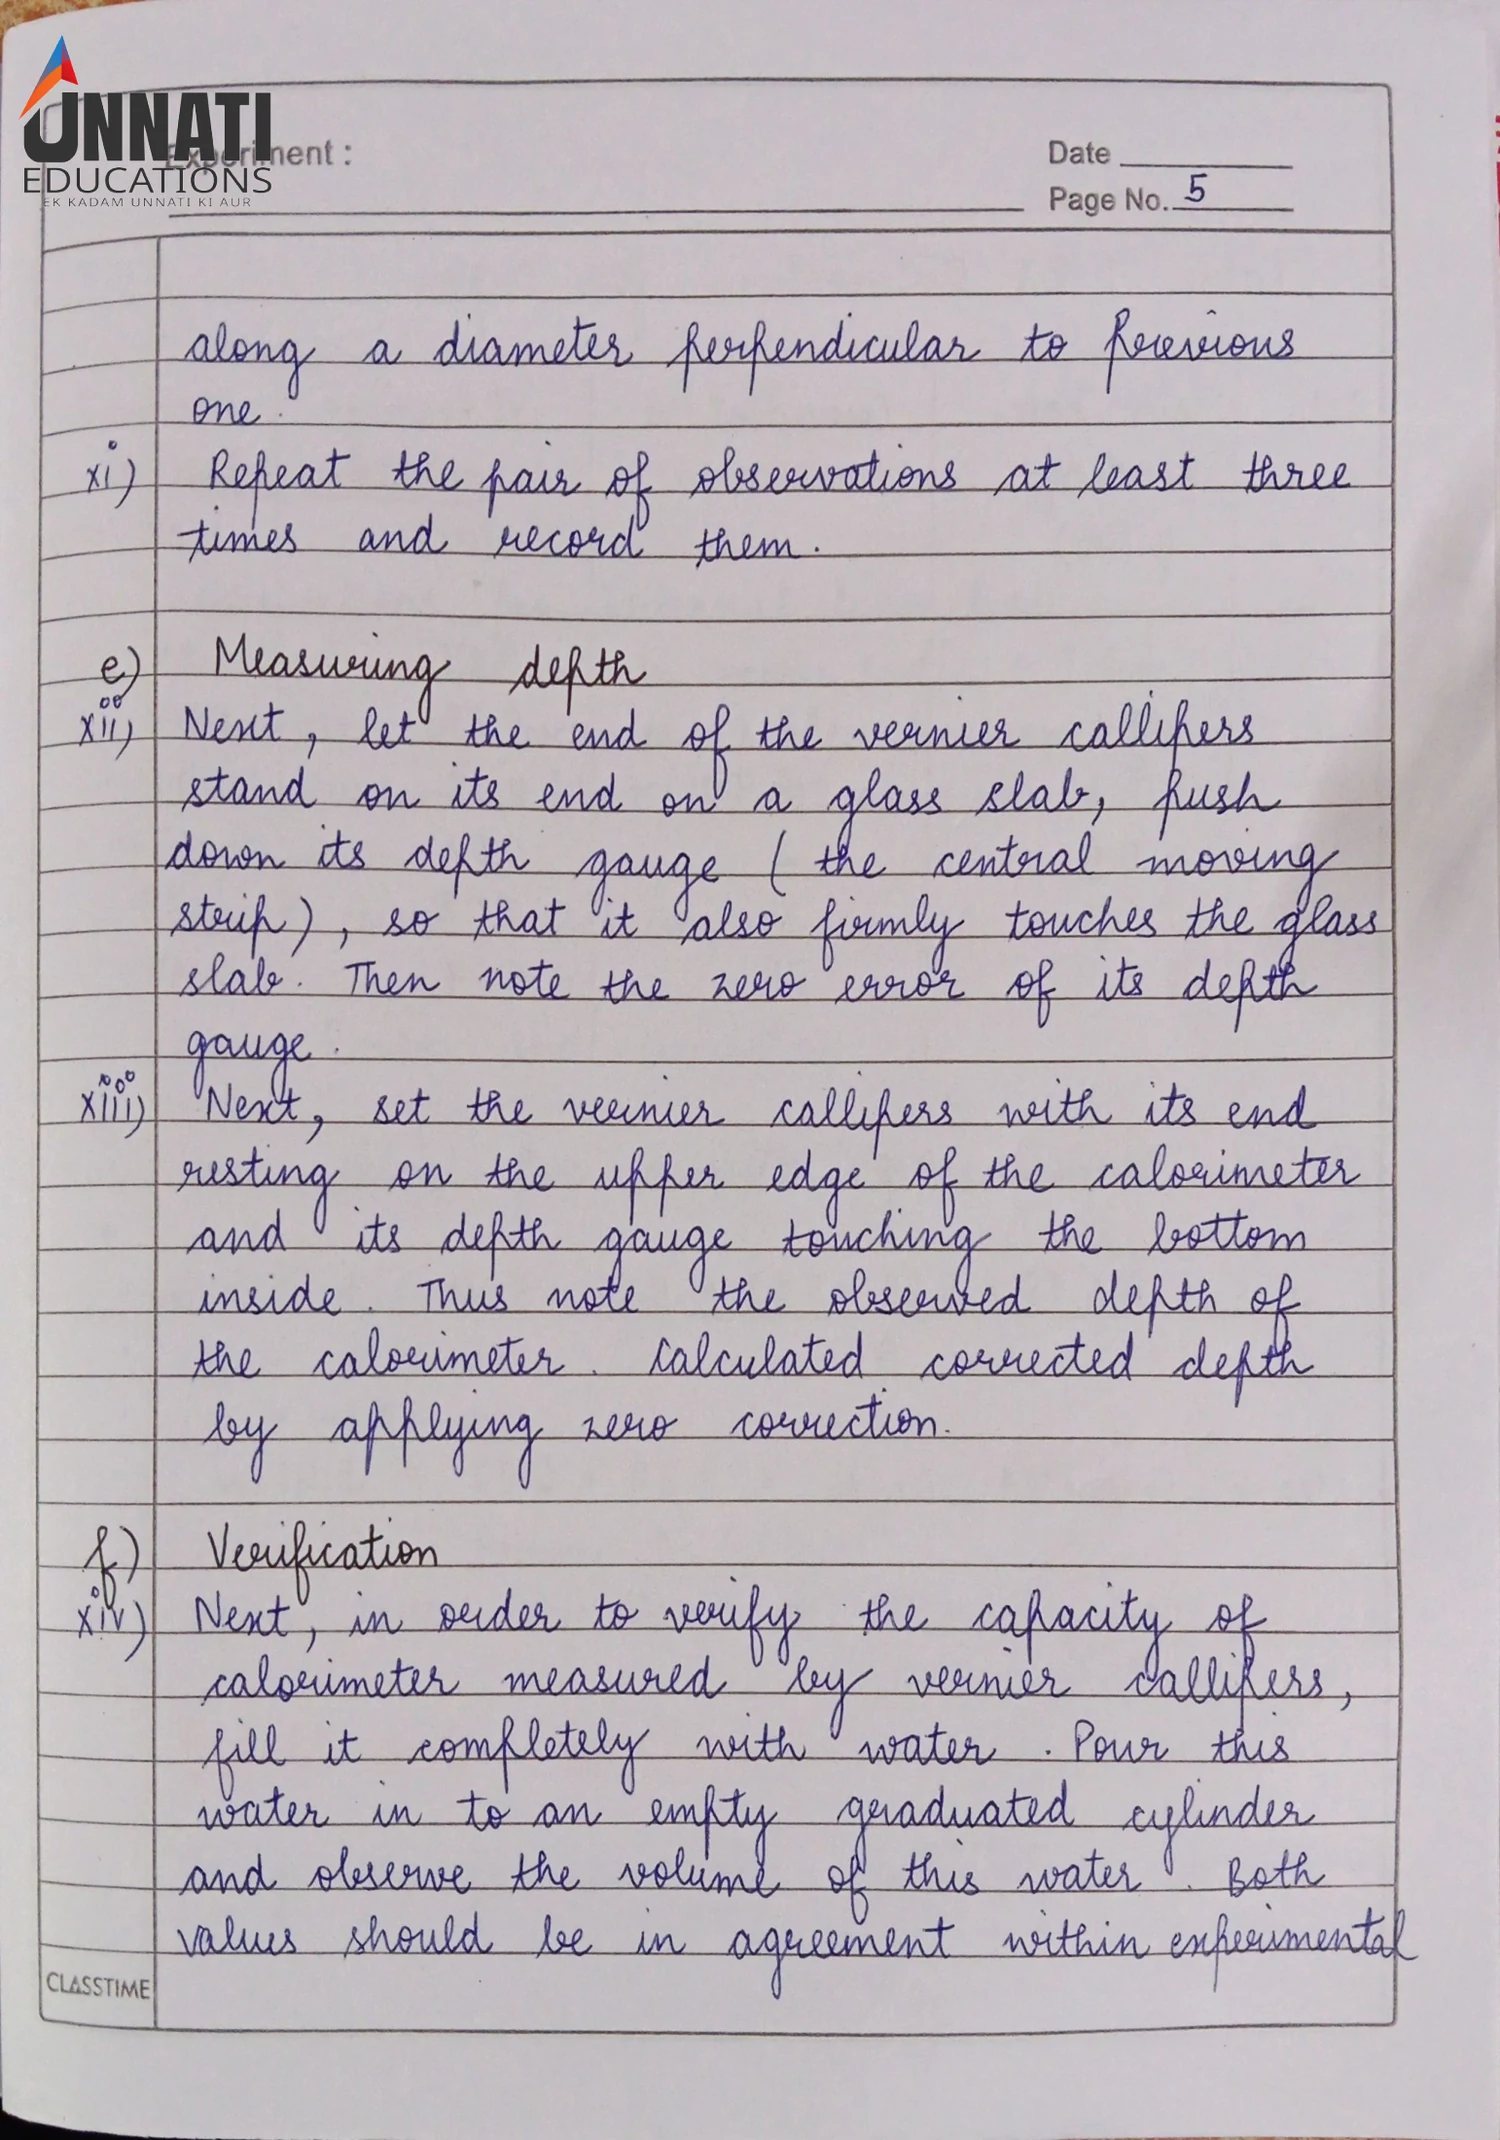 UNNATI
EDUCATIONS
EK KADAM UNNATI KI AUR
Experiment :
Date
Page No. 5
along a diameter perpendicular to previous
one.
xi) Repeat the pair of observations at least three
times and record them.
e) Measuring depth
xii) Next, let the end of the vernier callipers
stand on its end on a glass slab, push
down its depth gauge (the central moving
strip), so that it also firmly touches the glass
slab. Then note the zero error of its depth
gauge.
xiii) Next, set the vernier callipers with its end
resting on the upper edge of the calorimeter
and its depth gauge touching the bottom
inside. Thus note the observed depth of
the calorimeter. Calculated corrected depth
by applying zero correction.
f) Verification
xiv) Next, in order to verify the capacity of
calorimeter measured by vernier callipers,
fill it completely with water. Pour this
water in to an empty graduated cylinder
and observe the volume of this water. Both
values should be in agreement within experimental
CLASSTIME